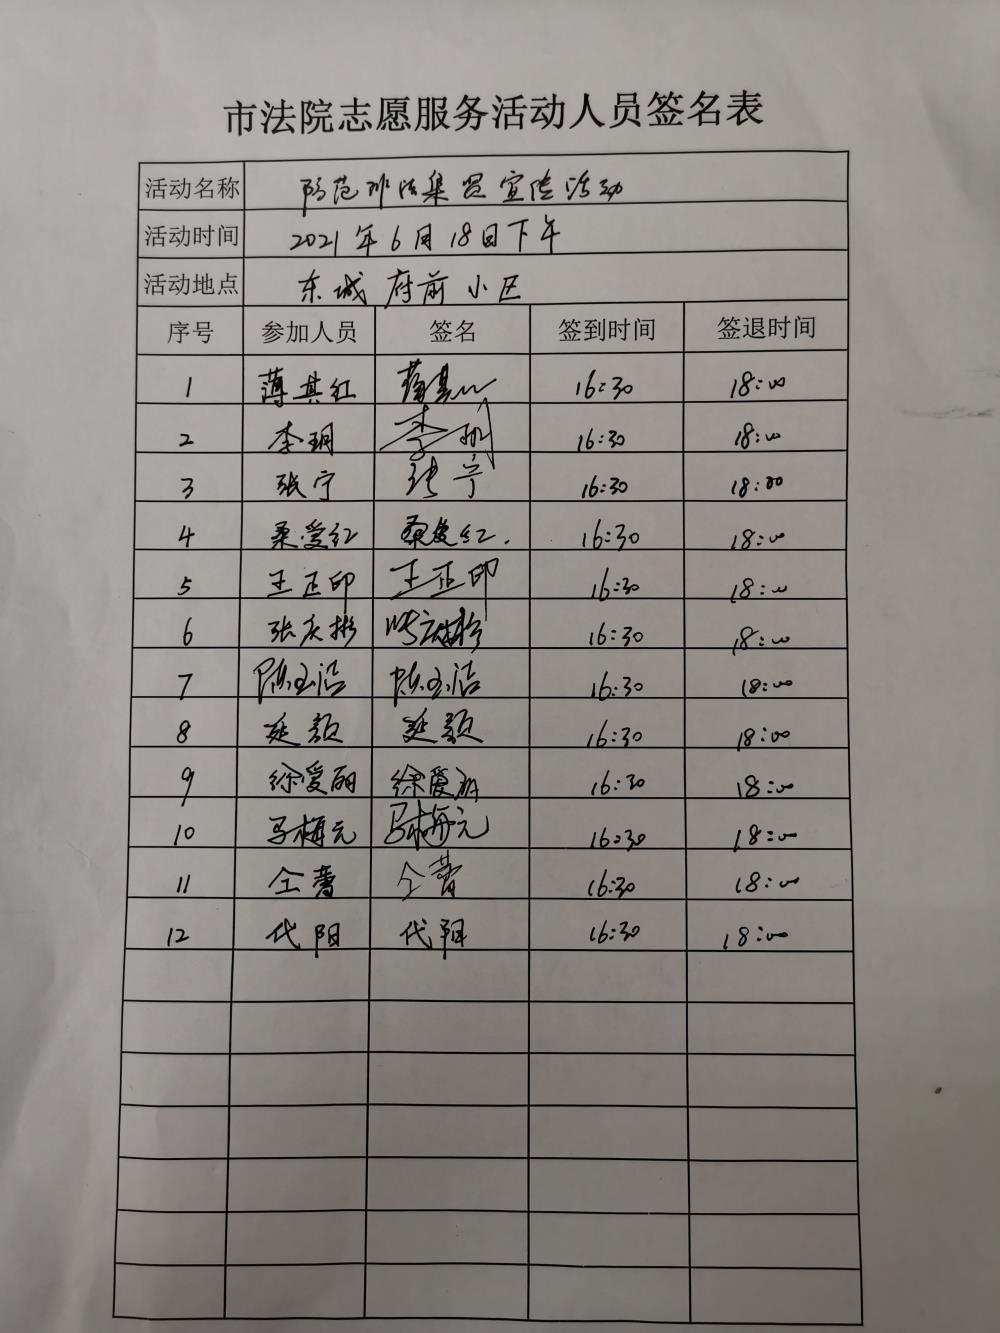 市法院志愿服务活动人员签名表
活动名称 防范非法集资宣传活动
活动时间 2021年6月18日下午
活动地点 东城府前小区
序号 参加人员 签名 签到时间 签退时间
1 薄其红 薄其红 16:30 18:00
2 李玥 李玥 16:30 18:00
3 张宁 张宁 16:30 18:00
4 桑爱红 桑爱红. 16:30 18:00
5 王正印 王正印 16:30 18:00
6 张庆彬 16:30 18:00
7 陈玉洁 陈玉洁 16:30 18:00
8 延颜 延颜 16:30 18:00
9 徐爱丽 徐爱丽 16:30 18:00
10 马梅元 马梅元 16:30 18:00
11 仝蕾 仝蕾 16:30 18:00
12 代阳 代阳 16:30 18:00